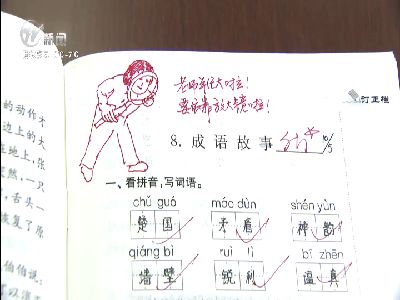 新闻
老师年纪大啦！
要依靠放大镜啦！
订正栏
8. 成语故事
10/5
一、看拼音，写词语。
chǔ guó máo dùn shén yùn
楚国 矛盾 神韵
qiáng bì ruì lì bī zhēn
墙壁 锐利 逼真
的动作才
边上的大
在地上，张
突然，一只
，舌头一
恢复了原
伯伯说：